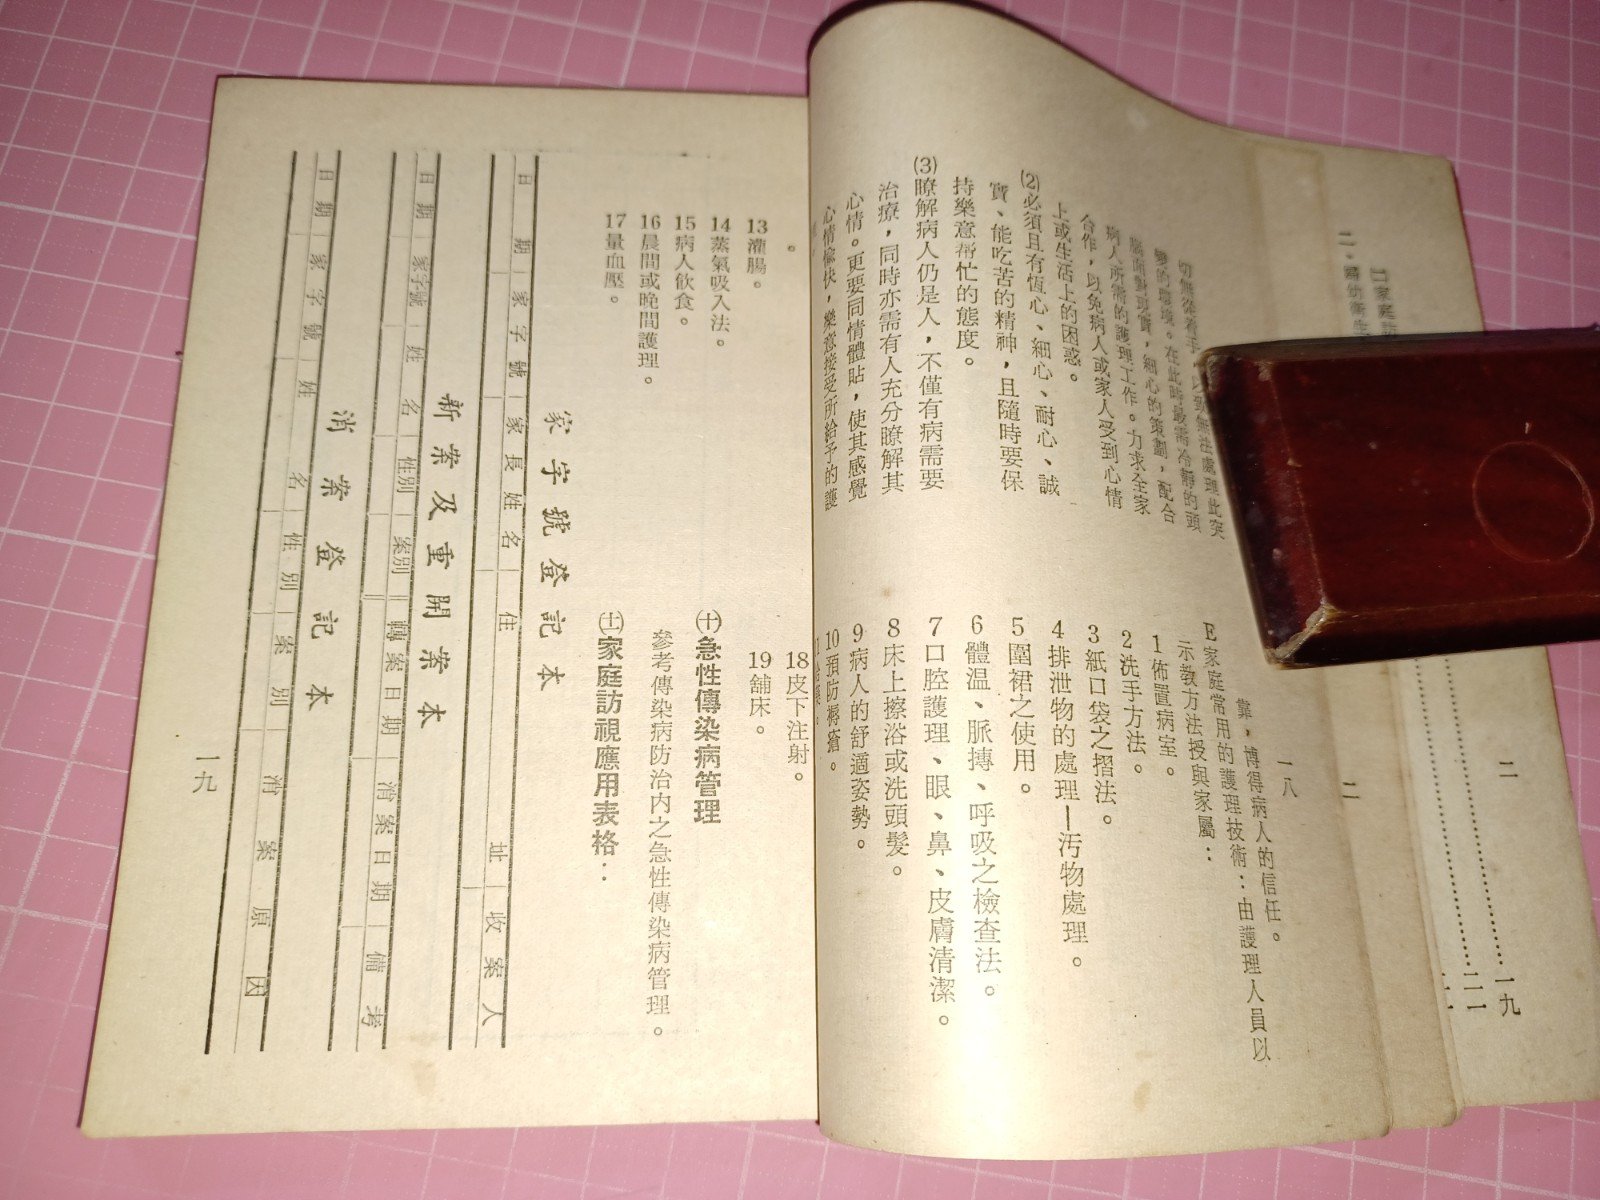 二
一九
二一
口家庭訪
二
一八
切無從着手，以致無法處理此突
變的環境。在此時最需冷靜的頭
腦面對現實，細心的策劃，配合
病人所需的護理工作。力求全家
合作，以免病人或家人受到心情
上或生活上的困惑。
⑵必須且有恆心、細心、耐心、誠
實、能吃苦的精神，且隨時要保
持樂意幫忙的態度。
⑶瞭解病人仍是人，不僅有病需要
治療，同時亦需有人充分瞭解其
心情。更要同情體貼，使其感覺
心情愉快，樂意接受所給予的護
靠，博得病人的信任。
E家庭常用的護理技術：由護理人員以
示教方法授與家屬：
1佈置病室。
2洗手方法。
3紙口袋之摺法。
4排泄物的處理—汚物處理。
5圍裙之使用。
6體溫、脈搏、呼吸之檢查法。
7口腔護理、眼、鼻、皮膚清潔。
8床上擦浴或洗頭髮。
9病人的舒適姿勢。
10預防褥瘡。
。
13灌腸。
14蒸氣吸入法。
15病人飲食。
16晨間或晚間護理。
17量血壓。
18皮下注射。
19舖床。
㈩急性傳染病管理
參考傳染病防治內之急性傳染病管理。
(十一)家庭訪視應用表格：
家字號登記本
日期 家字號 家長姓名 住址 收案人
新案及重開案本
日期 家字號 姓名 性別 案別 轉案日期 消案日期 備考
消案登記本
日期 家字號 姓名 性別 案別 消案原因
一九